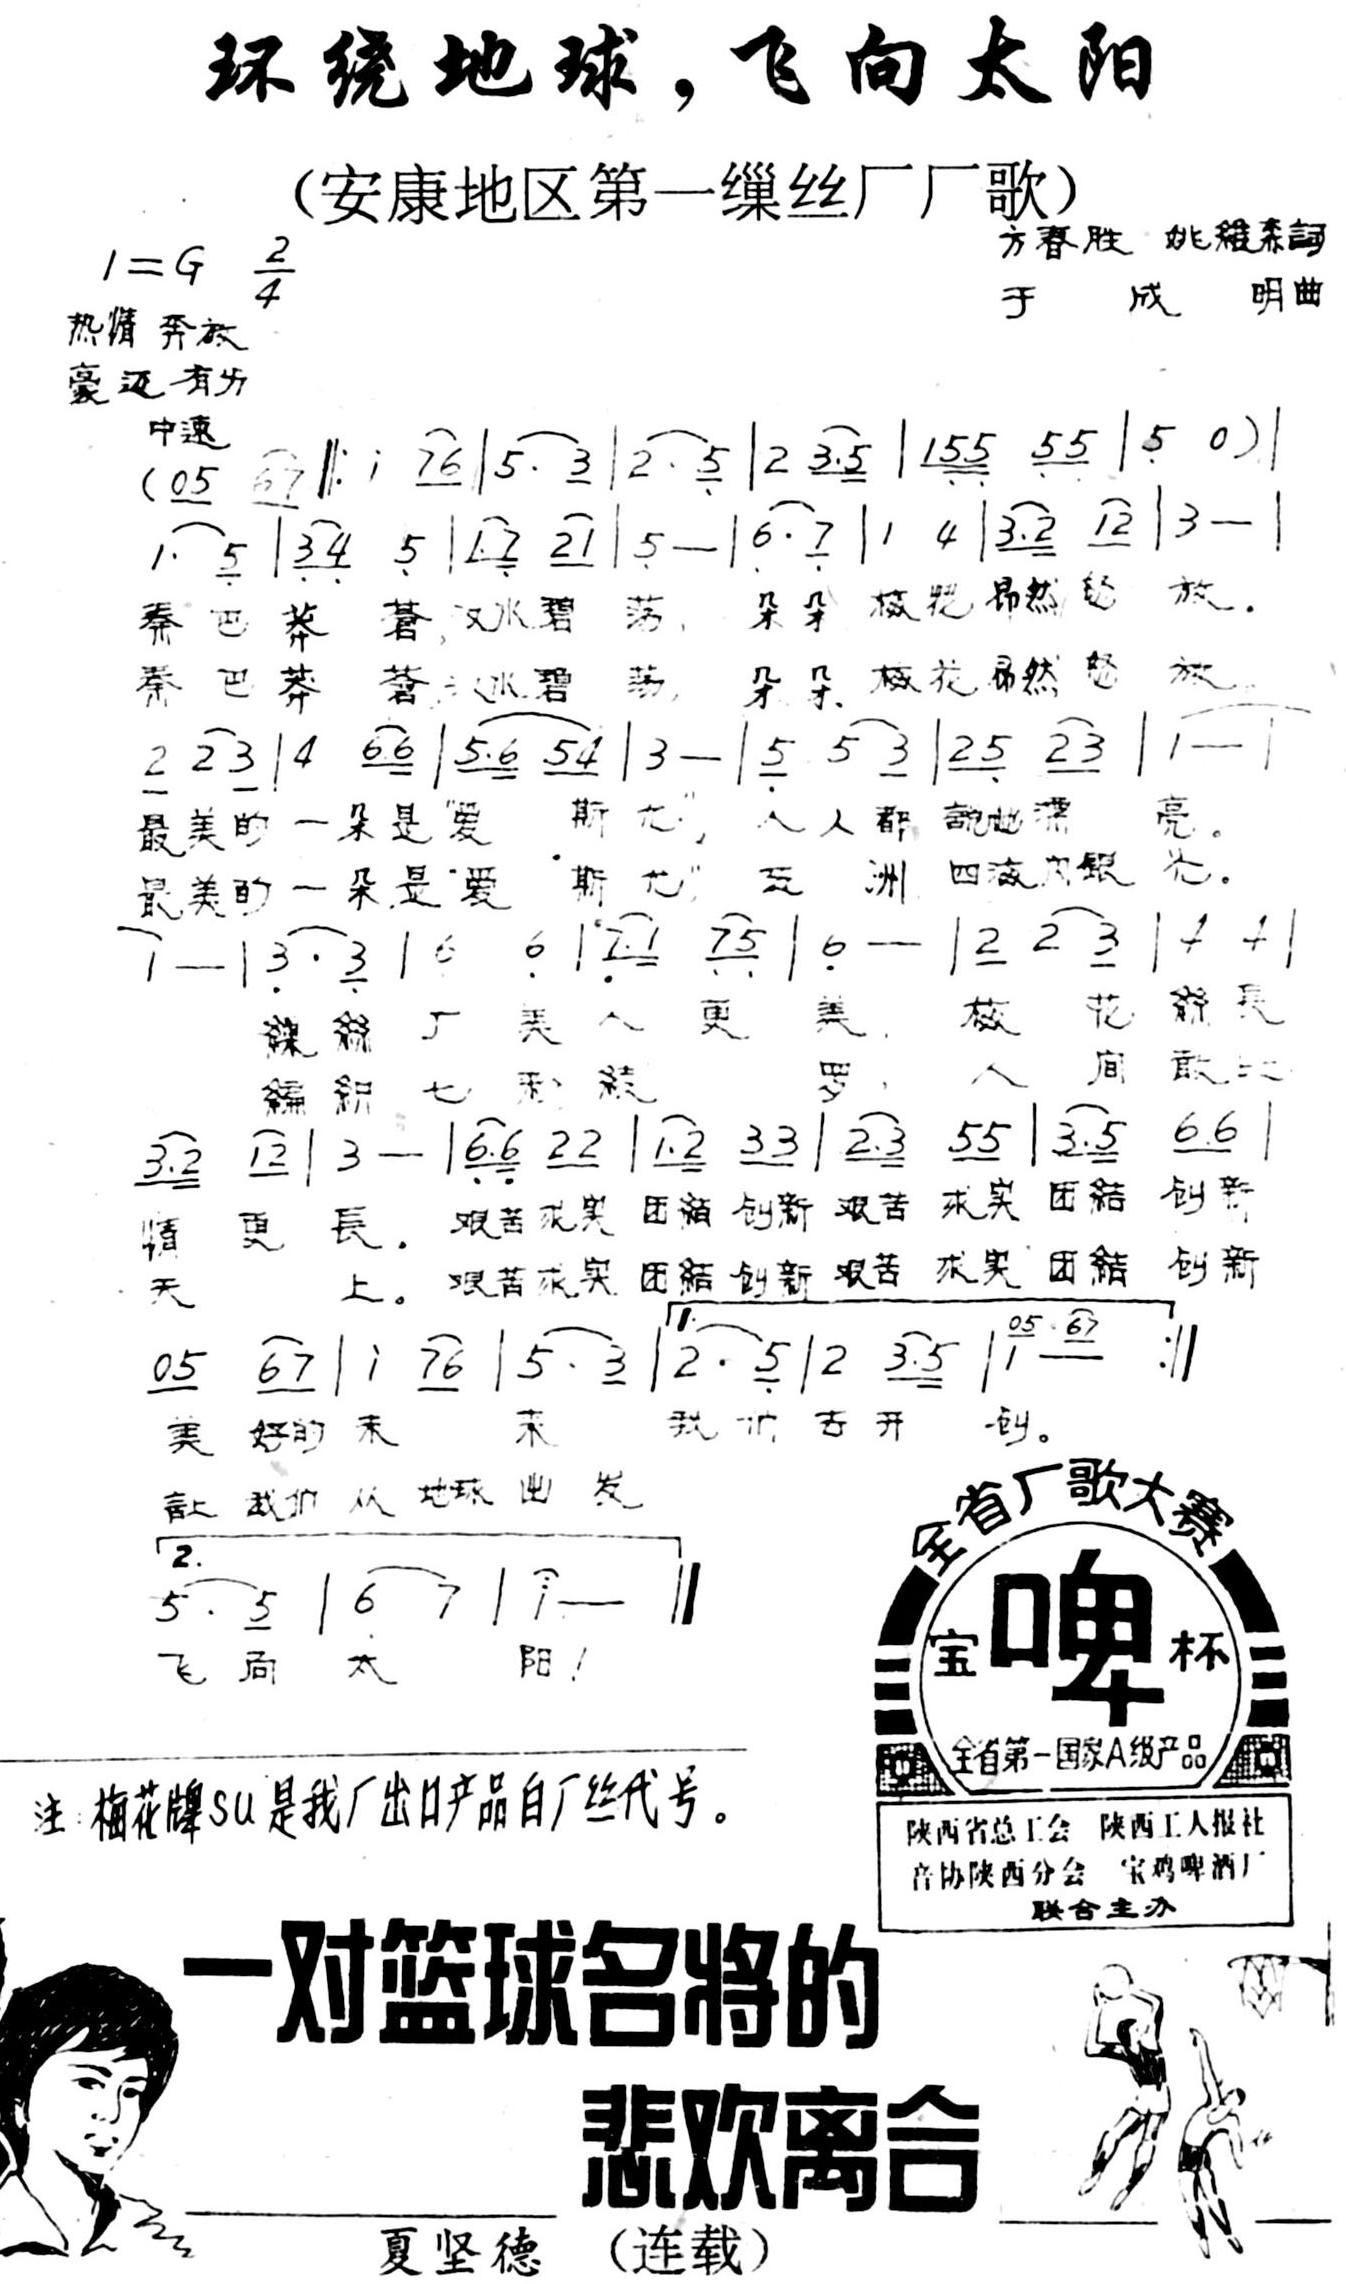 环绕地球，飞向太阳
（安康地区第一缫丝厂厂歌）
方春胜 姚維森詞
于成明曲
1=G 2/4
热情 奔放
豪迈 有力
中速
(05 67 ‖: i 76 | 5· 3 | 2· 5 | 2 3·5 | 155 55 | 5 0) |
1· 5 | 34 5 | 1·7 21 | 5 — | 6· 7 | 1 4 | 3·2 12 | 3 — |
秦巴莽蒼，汉水碧荡，朵朵梅花昂然怒放。
秦巴莽蒼，汉水碧荡，朵朵梅花昂然怒放。
2 23 | 4 66 | 5·6 54 | 3 — | 5 5 3 | 25 23 | 1 — |
最美的一朵是“爱斯尤”，人人都說她漂亮。
最美的一朵是“爱斯尤”，五洲四海闪銀光。
1 — | 3· 3 | 6 6 | 1·1 75 | 6 — | 2 2 3 | 4 4 |
繅絲厂美人更美，梅花絲長
編織七彩綾罗，人间敢比
3·2 12 | 3 — | 6·6 22 | 1·2 33 | 2·3 55 | 3·5 6·6 |
情更長。艰苦求实团結创新艰苦求实团結创新
天上。艰苦求实团結创新艰苦求实团結创新
1.
05 67 | i 76 | 5· 3 | 2· 5 | 2 3·5 | 1 — :‖
05 67
美好的未来我们去开创。
让我们从地球出发
2.
5· 5 | 6 7 | i — ‖
飞向太阳！
全省厂歌大赛
宝啤杯
全省第一国家A级产品
注：梅花牌SU是我厂出口产品白厂丝代号。
陕西省总工会 陕西工人报社
音协陕西分会 宝鸡啤酒厂
联合主办
一对篮球名将的
悲欢离合
夏坚德 （连载）